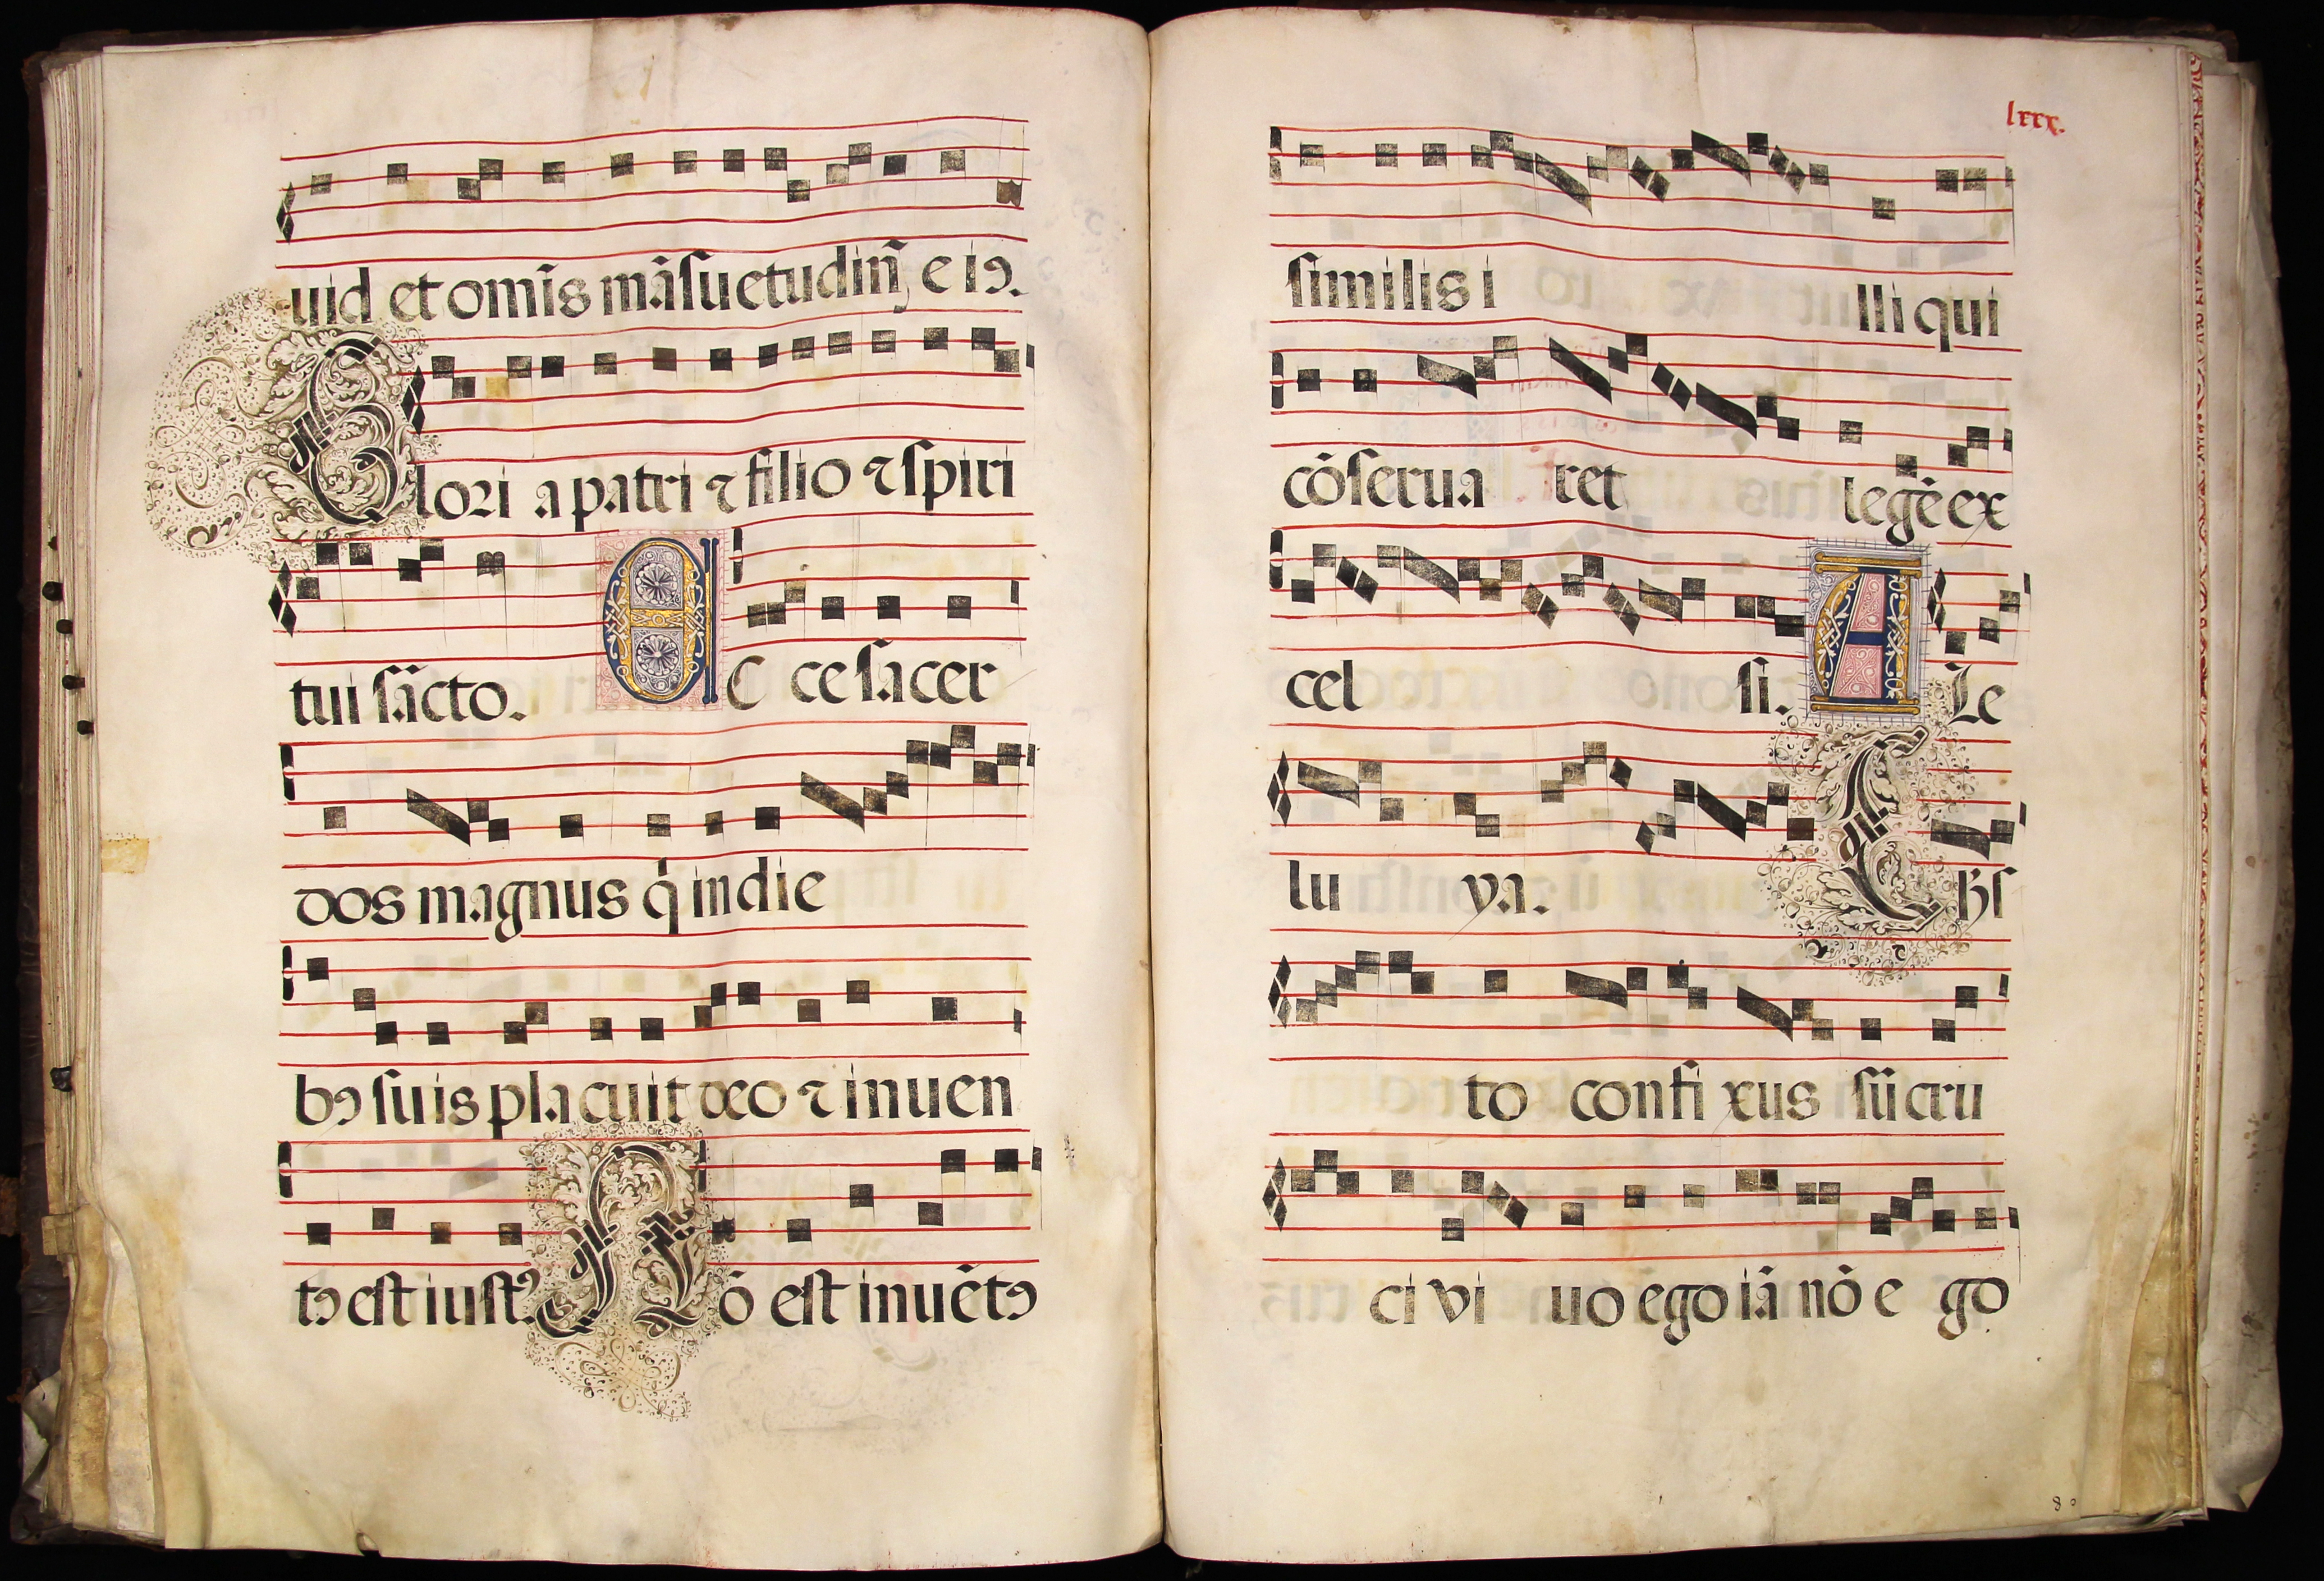 uid et omĩs mãsuetudiñ, e iꝰ.
Glori a patri ⁊ filio ⁊ spiri
tui sãcto. EC ce sacer
dos magnus q̇ in die
bꝰ suis placuit deo ⁊ inuen
tꝰ est iustꝰ Nõ est inuẽtꝰ
lxxx.
similis i lli qui
cõserua ret legẽ ex
cel si. A Le
lu ya. C Hr̃
to confi xus sũ cru
ci vi uo ego iã nõ e go
80